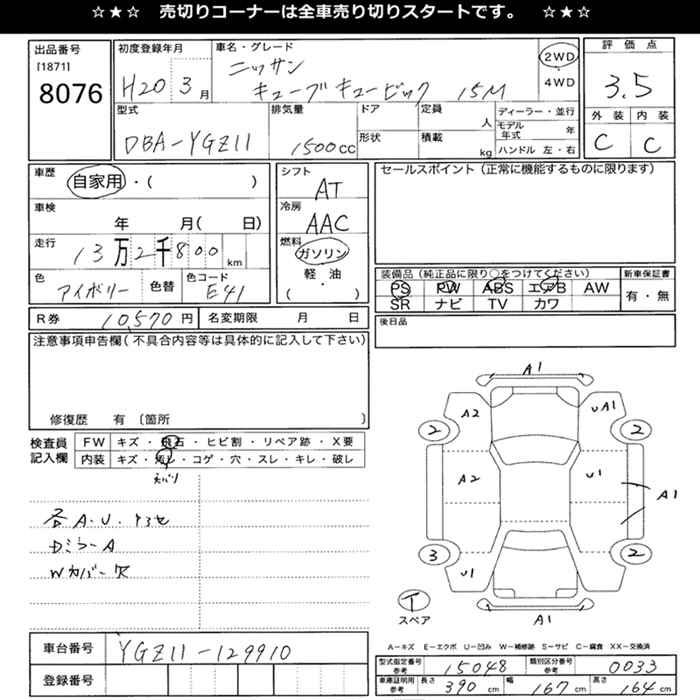 ☆★☆ 売切りコーナーは全車売り切りスタートです。 ☆★☆
出品番号
[1871]
8076
初度登録年月
H20 3月
車名・グレード
ニッサン
キューブキュービック 15M
2WD
・
4WD
評価点
3.5
外装 内装
C C
型式
DBA-YGZ11
排気量
1500cc
ドア
形状
定員
人
積載
kg
ディーラー・並行
モデル年式 年
ハンドル 左・右
車歴
自家用・( )
車検
年 月( 日)
走行
13万2千800km
色
アイボリー
色替
色コード
E41
シフト
AT
冷房
AAC
燃料
ガソリン
軽・油
( )
セールスポイント(正常に機能するものに限ります)
装備品(純正品に限り○をつけてください)
PS PW ABS エアB AW
SR ナビ TV カワ
新車保証書
有・無
後日品
R券 10,570円
名変期限 月 日
注意事項申告欄(不具合内容等は具体的に記入して下さい)
修復歴 有〔箇所 〕
検査員記入欄
FW キズ・飛石・ヒビ割・リペア跡・X要
内装 キズ・汚レ・コゲ・穴・スレ・キレ・破レ
各A.U.ヨゴレ
DミラーA
Wカバー欠
A1
A2
UA1
2
2
A2
U1
A1
3
2
U1
A1
T
スペア
A-キズ E-エクボ U-凹み W-補修跡 S-サビ C-腐食 XX-交換済
車台番号 YGZ11-129910
登録番号
型式指定番号 参考 15048
類別区分番号 参考 0033
車庫証明用 参考
長さ 390cm
幅 167cm
高さ 164cm